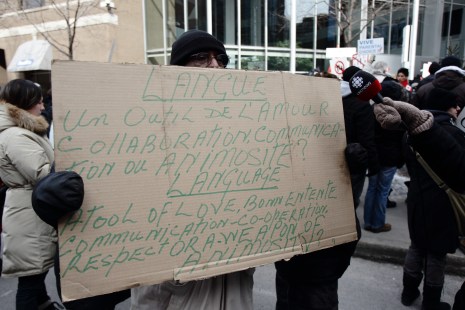 LANGUE
UN OUTIL DE L'AMOUR
COLLABORATION, COMMUNICA-
TION OU ANIMOSITÉ?
LANGUAGE
A TOOL OF LOVE, BONN ENTENTE
COMMUNICATION-CO-OPERATION,
RESPECT OR A-WEAPON OF
ANIMOSITY?
VIVE